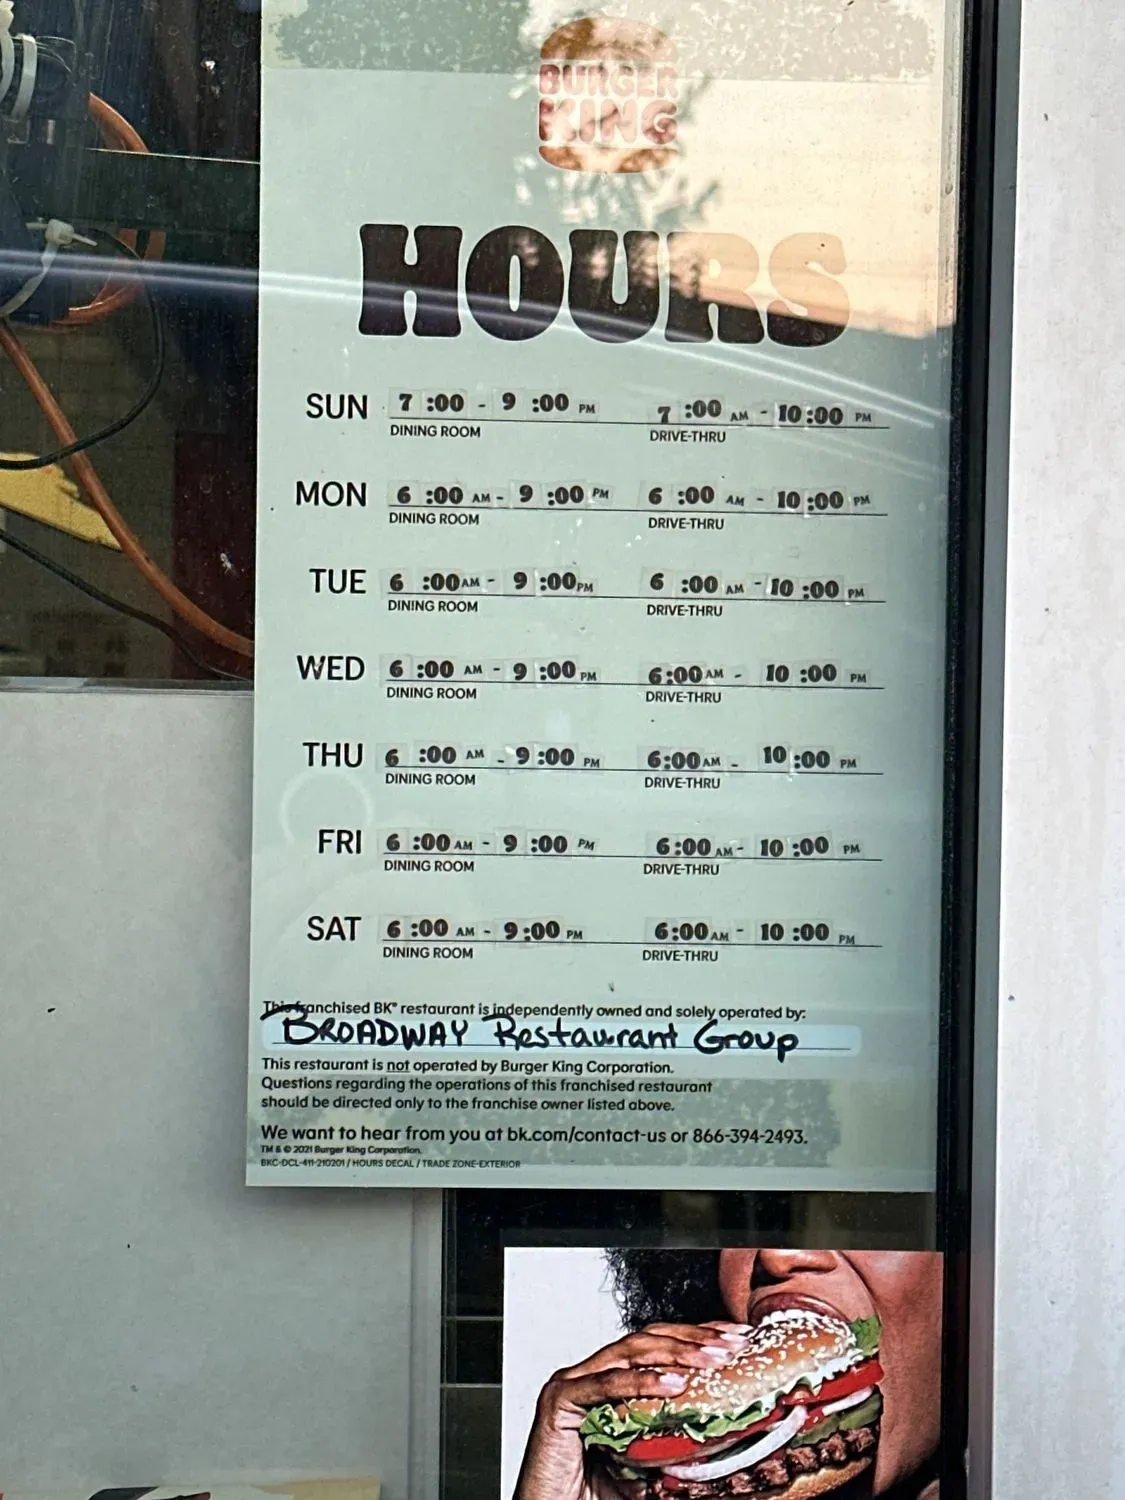 BURGER
KING
HOURS
SUN 7:00 - 9:00 PM 7:00 AM - 10:00 PM
DINING ROOM DRIVE-THRU
MON 6:00 AM - 9:00 PM 6:00 AM - 10:00 PM
DINING ROOM DRIVE-THRU
TUE 6:00 AM - 9:00 PM 6:00 AM - 10:00 PM
DINING ROOM DRIVE-THRU
WED 6:00 AM - 9:00 PM 6:00 AM - 10:00 PM
DINING ROOM DRIVE-THRU
THU 6:00 AM - 9:00 PM 6:00 AM - 10:00 PM
DINING ROOM DRIVE-THRU
FRI 6:00 AM - 9:00 PM 6:00 AM - 10:00 PM
DINING ROOM DRIVE-THRU
SAT 6:00 AM - 9:00 PM 6:00 AM - 10:00 PM
DINING ROOM DRIVE-THRU
This franchised BK® restaurant is independently owned and solely operated by:
BROADWAY Restaurant Group
This restaurant is not operated by Burger King Corporation.
Questions regarding the operations of this franchised restaurant
should be directed only to the franchise owner listed above.
We want to hear from you at bk.com/contact-us or 866-394-2493.
TM & © 2021 Burger King Corporation.
BKC-DCL-411-210201 / HOURS DECAL / TRADE ZONE-EXTERIOR